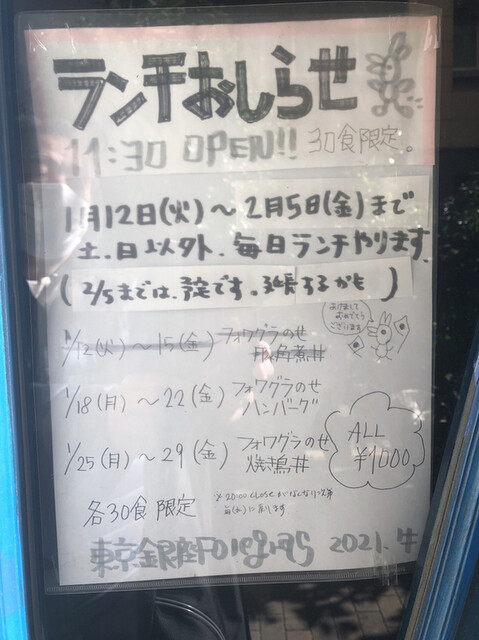 ランチおしらせ
11:30 OPEN!! 30食限定。
1月12日(火)～2月5日(金)まで
土、日以外、毎日ランチやります。
(2/5までは、予定です。延長するかも)
あけまして
おめでとう
ございます
1/12(火)～15(金) フォワグラのせ
豚角煮丼
1/18(月)～22(金) フォワグラのせ
ハンバーグ
1/25(月)～29(金) フォワグラのせ
焼鳥丼
ALL
¥1000
各30食限定
※20:00 closeが
東京銀座Foiegras 2021.牛